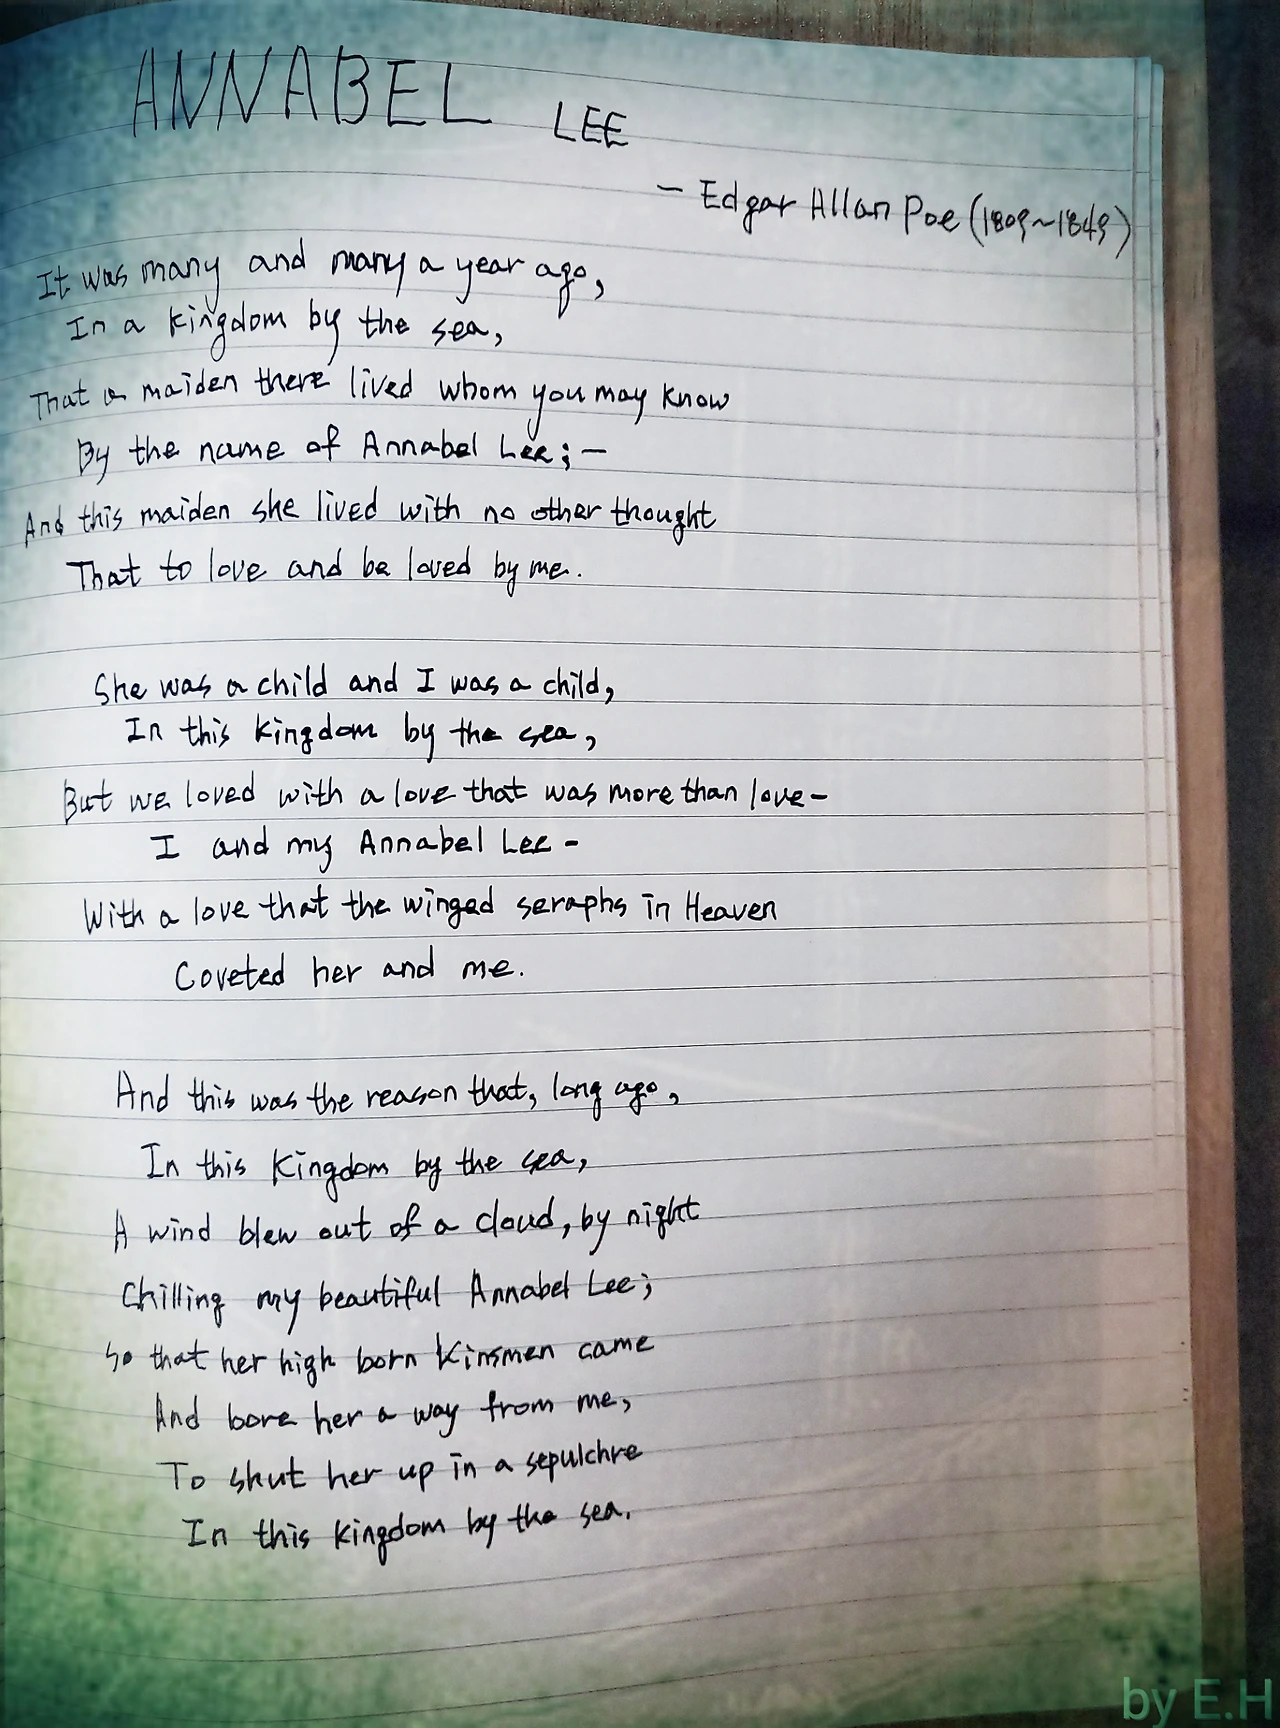 ANNABEL LEE
- Edgar Allan Poe (1809~1849)
It was many and many a year ago,
In a kingdom by the sea,
That a maiden there lived whom you may know
By the name of Annabel Lee; -
And this maiden she lived with no other thought
That to love and be loved by me.
She was a child and I was a child,
In this kingdom by the sea,
But we loved with a love that was more than love -
I and my Annabel Lee -
With a love that the winged seraphs in Heaven
Coveted her and me.
And this was the reason that, long ago,
In this kingdom by the sea,
A wind blew out of a cloud, by night
Chilling my beautiful Annabel Lee;
So that her high born kinsmen came
And bore her a way from me,
To shut her up in a sepulchre
In this kingdom by the sea.
by E.H